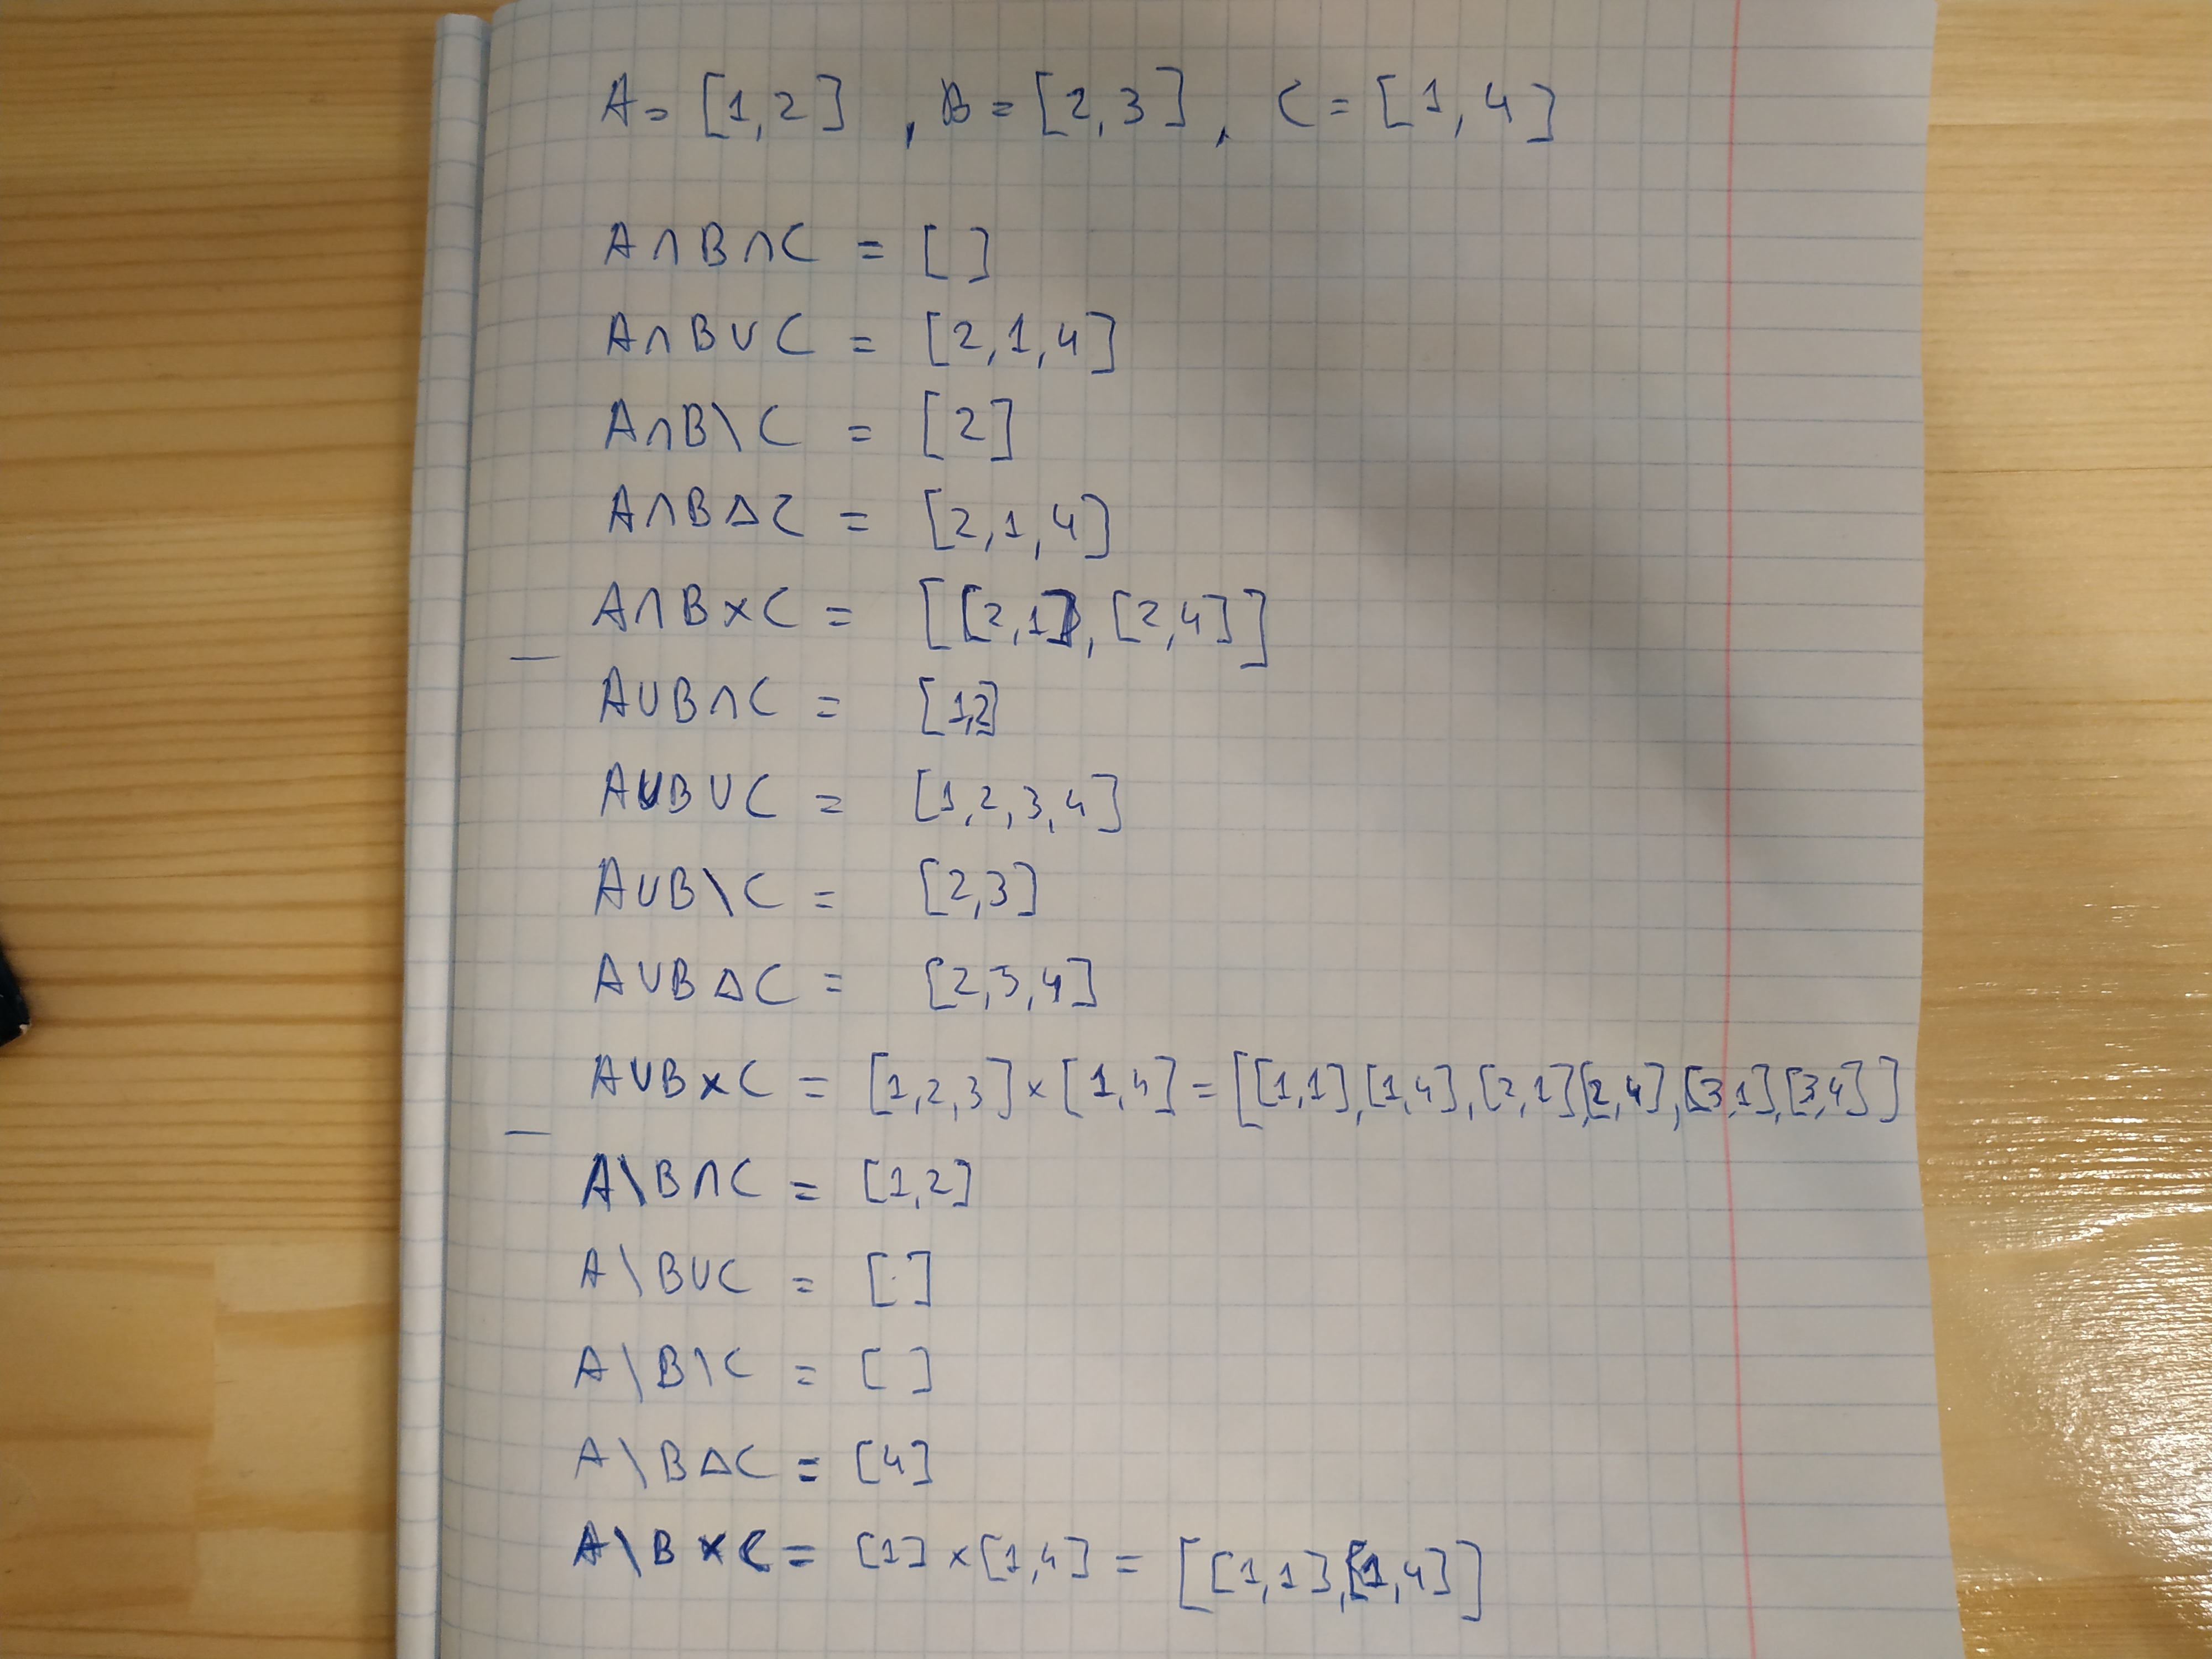 A = [1,2] , B = [2,3] , C = [1,4]
A∩B∩C = [ ]
A∩B∪C = [2,1,4]
A∩B\C = [2]
A∩B△C = [2,1,4]
A∩B×C = [[2,1],[2,4]]
A∪B∩C = [1,2]
A∪B∪C = [1,2,3,4]
A∪B\C = [2,3]
A∪B△C = [2,3,4]
A∪B×C = [1,2,3]×[1,4] = [[1,1],[1,4],[2,1],[2,4],[3,1],[3,4]]
A\B∩C = [1,2]
A\B∪C = [ ]
A\B\C = [ ]
A\B△C = [4]
A\B×C = [1]×[1,4] = [[1,1],[1,4]]